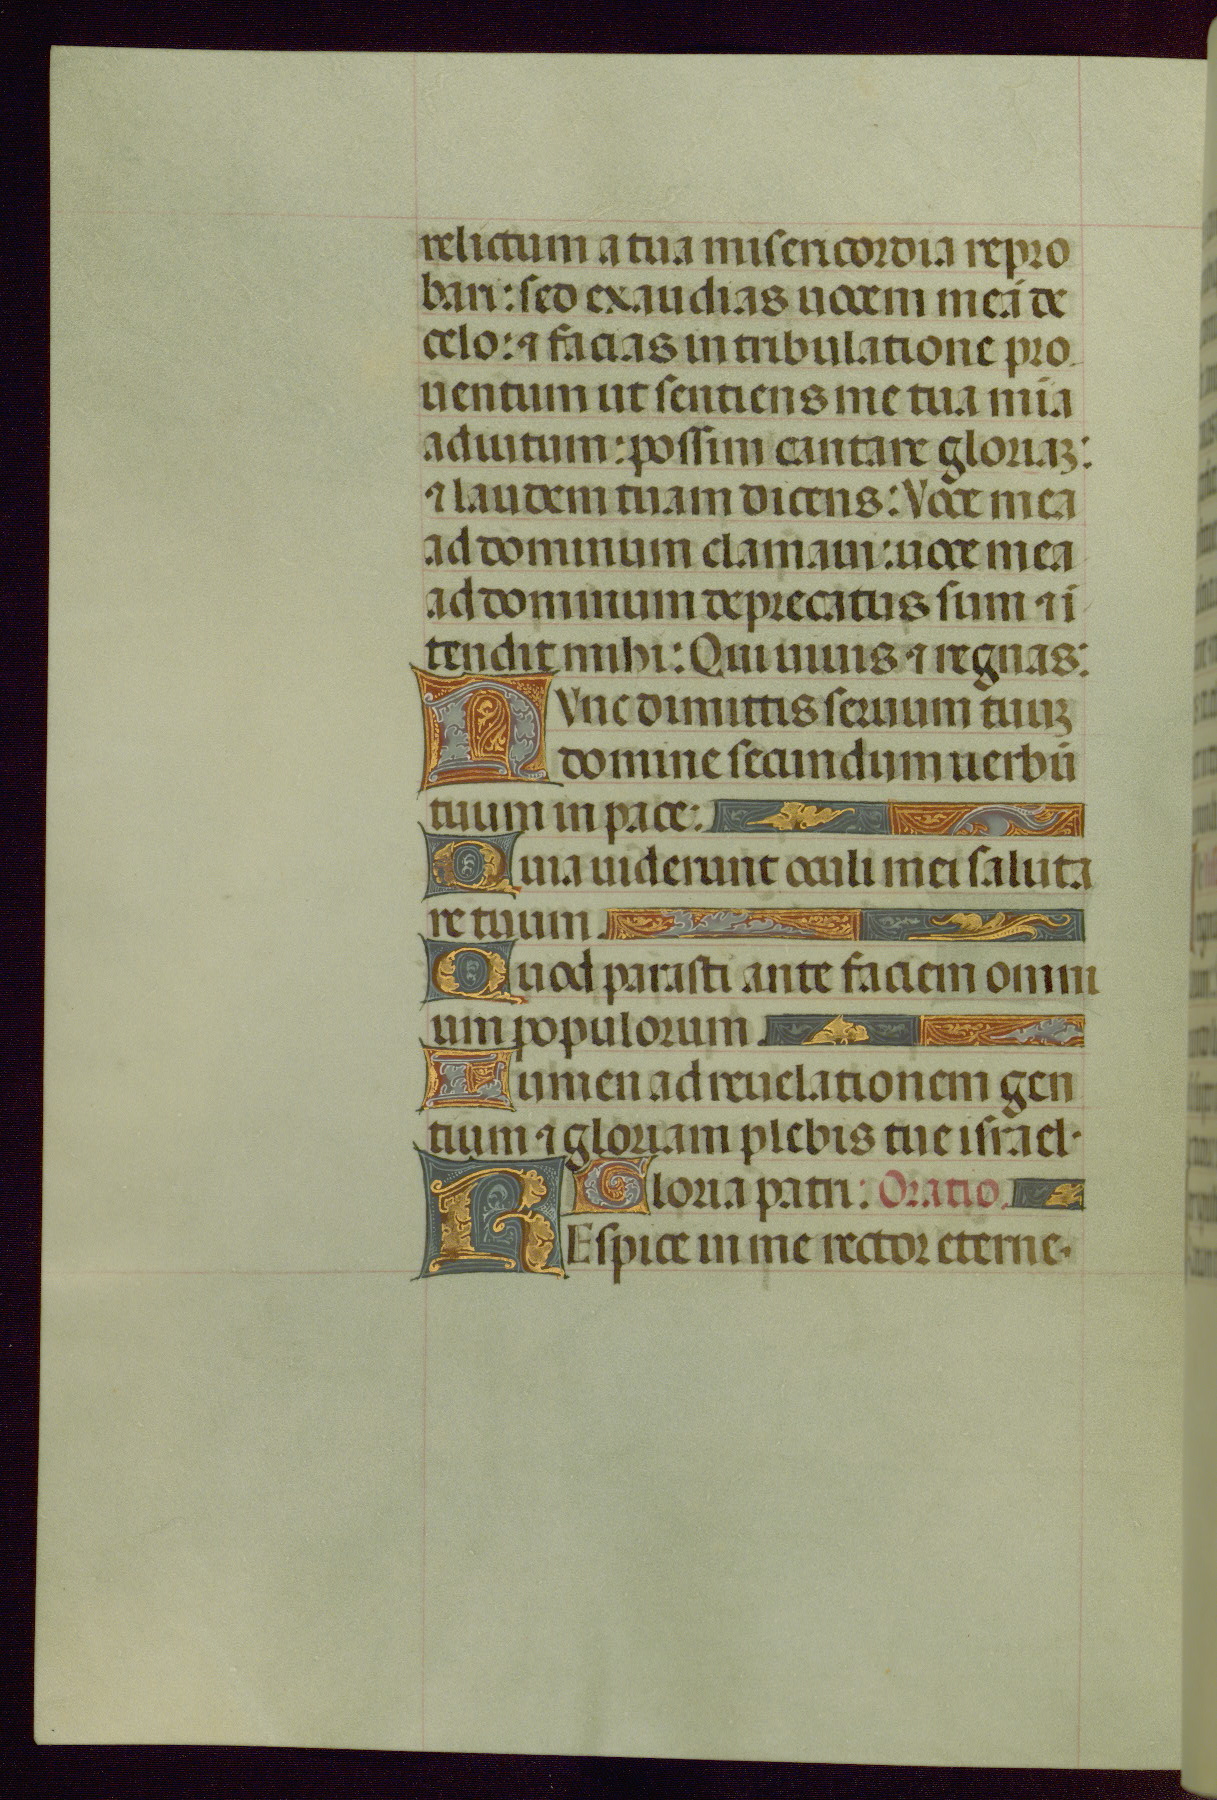 relictum a tua misericordia repro
bari: sed exaudias uocem meā de
celo: ⁊ facias in tribulatione pro
uentum ut sentiens me tua mīa
aduitum: possim cantare gloriaꝫ:
⁊ laudem tuam dicens: Voce mea
ad dominum clamaui: uoce mea
ad dominum deprecatus sum ⁊ ī
tendit mihi: Qui uiuis ⁊ regnas:
NVnc dimittis seruum tuuꝫ
domine secundum uerbū
tuum in pace:
Quia uiderunt oculi mei saluta
re tuum.
Quod parasti ante faciem omni
um populorum.
Lumen ad reuelationem gen
tium ⁊ gloriam plebis tue israel.
Gloria patri: Oratio.
REspice in me rector eterne.